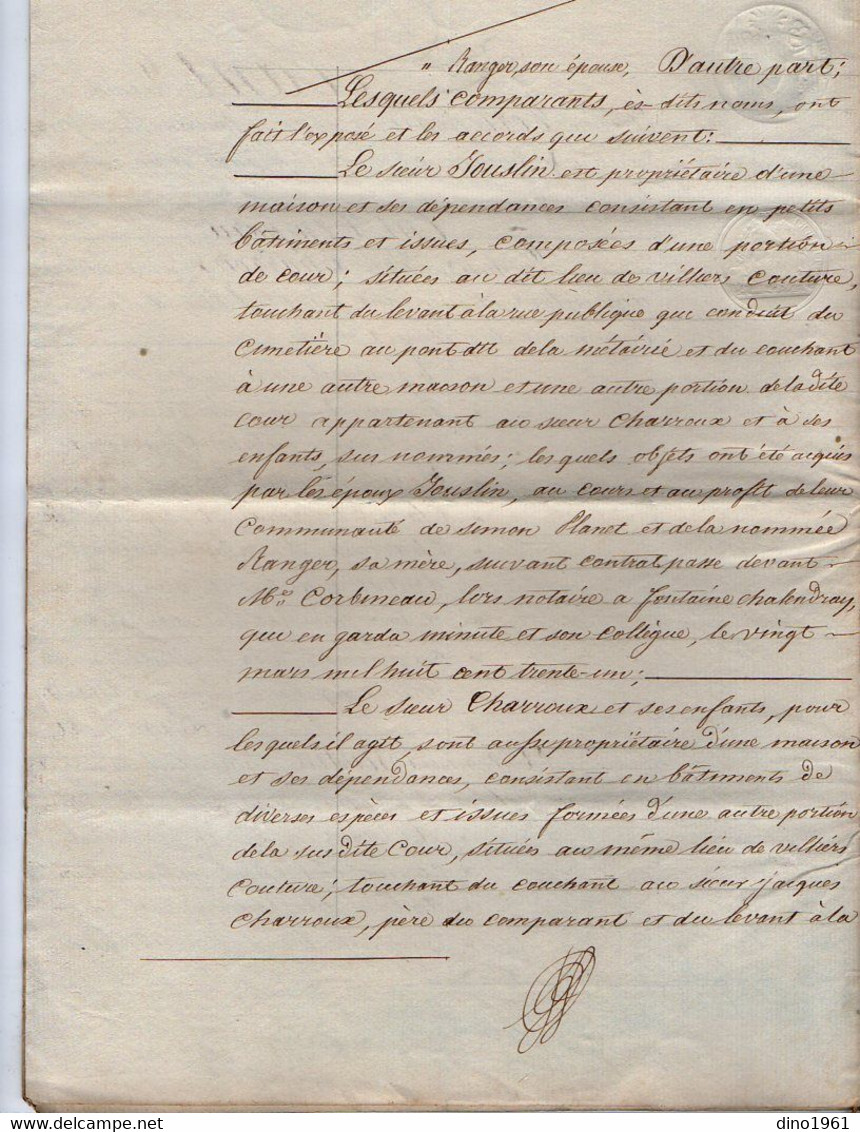 " Ranger, son épouse, D'autre part;
Lesquels comparants, ès-dits noms, ont
fait l'exposé et les accords qui suivent:
Le sieur Jouslin est propriétaire d'une
maison et ses dépendances consistant en petits
bâtiments et issues, composées d'une portion
de cour; situées au dit lieu de villiers couture,
touchant du levant à la rue publique qui conduit du
Cimetière au pont dit de la métairie et du couchant
à une autre maison et une autre portion de la dite
cour appartenant au sieur Charroux et à ses
enfants, sus nommés; lesquels objets ont été acquis
par les époux Jouslin, au cours et au profit de leur
Communauté de simon Planet et de la nommée
Ranger, sa mère, suivant contrat passé devant
Me. Corbineau, lors notaire a fontaine chalendray,
qui en garda minute et son collègue, le vingt
mars mil huit cent trente-un;
Le sieur Charroux et ses enfants, pour
lesquels il agit, sont aussi propriétaire d'une maison
et ses dépendances, consistant en bâtiments de
diverses espèces et issues formées d'une autre portion
de la sus dite Cour, situés au même lieu de villiers
Couture; touchant du couchant au sieur Jacques
Charroux, père du comparant et du levant à la
dino1961